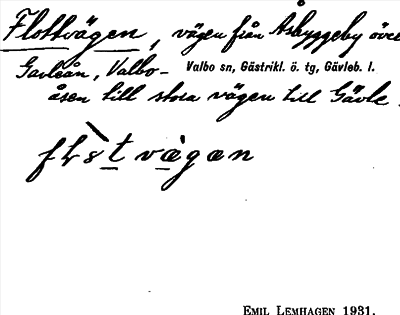 Flottvägen, vägen från Åbyggeby över
Gavleån, Valbo- Valbo sn, Gästrikl. ö. tg, Gävleb. l.
åsen till stora vägen till Gävle.
EMIL LEMHAGEN 1931.